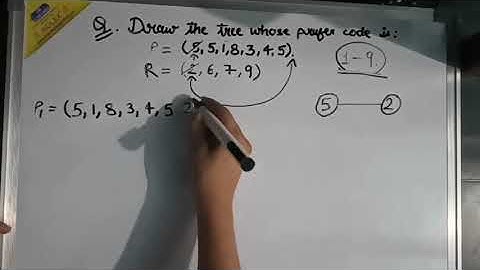 Q. Draw the tree whose prufer code is:
P = (5, 5, 1, 8, 3, 4, 5).
1-9
R = (2, 6, 7, 9)
P₁ = (5, 1, 8, 3, 4, 5 2
5 2